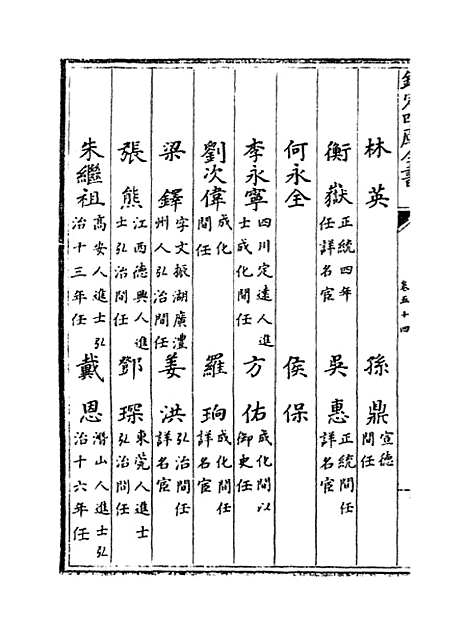 欽定四庫全書
卷五十四
林英
孫鼎 宣德間任
衡嶽 正統四年任詳名宦
吳惠 正統間任詳名宦
何永全
侯保
李永寧 四川定遠人進士成化間任
方佑 成化間以御史任
劉次偉 成化間任
羅珣 成化間任詳名宦
梁鐸 字文振湖廣澧州人弘治間任
姜洪 弘治間任詳名宦
張熊 江西德興人進士弘治間任
鄧琛 東莞人進士弘治間任
朱繼祖 高安人進士弘治十三年任
戴恩 潛山人進士弘治十六年任